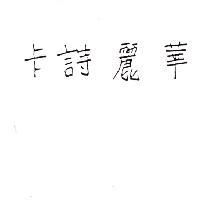 卡詩麗華